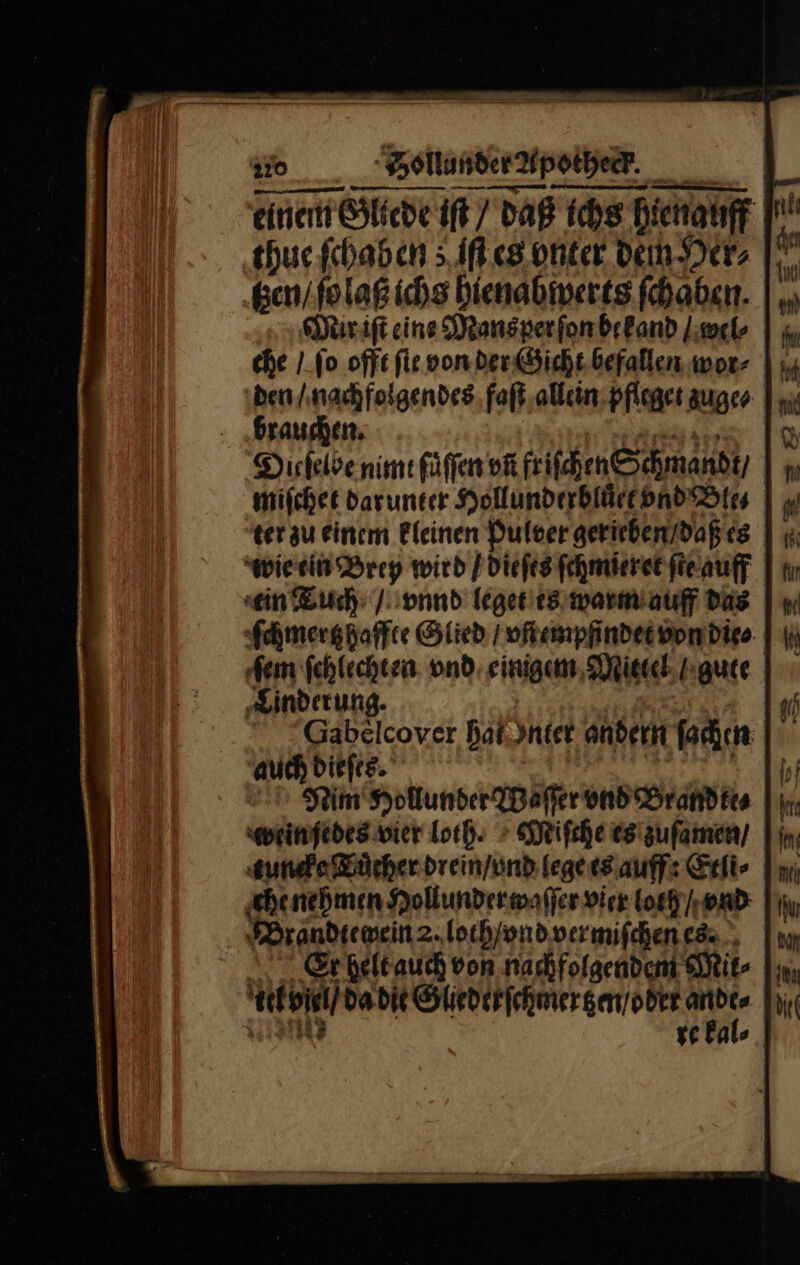 110 Hollunder Apotheck.
einem Gliede iſt / daß ichs hienauff
thue ſchaben ; iſt es vnter dem Her⸗
tzen / ſo laß ichs hienabwerts ſchaben.
Mir iſt eine Mansperſon bekand / wel⸗
che / ſo offt ſie von der Gicht befallen wor⸗
den / nachfolgendes faſt allein pfleget zuge⸗
brauchen.
Dieſelbe nimt ſuͤſſen vñ friſchen Schmandt /
miſchet darunter Hollunderbluͤet vnd Ble⸗
ter zu einem kleinen Pulver gerieben / daß es
wie ein Brey wird / dieſes ſchmieret ſie auff
ein Tuch / vnnd leget es warm auff das
ſchmertzhaffte Glied / vñ empfindet von die⸗
ſem ſchlechten vnd einigem Mittel / gute
Linderung.
Gabelcover hat vnter andern ſachen
auch dieſes.
Nim Hollunder Waſſer vnd Brandte⸗
wein jedes vier loth. Miſche es zuſamen /
tuncke Tuͤcher drein / vnd lege es auff: Etli⸗
che nehmen Hollunderwaſſer vier loth / vnd
Brandtewein 2. loth / vnd vermiſchen es.
Er helt auch von nachfolgendem Mit⸗
tel viel / da die Gliederſchmertzen / oder ande⸗
re kal⸗